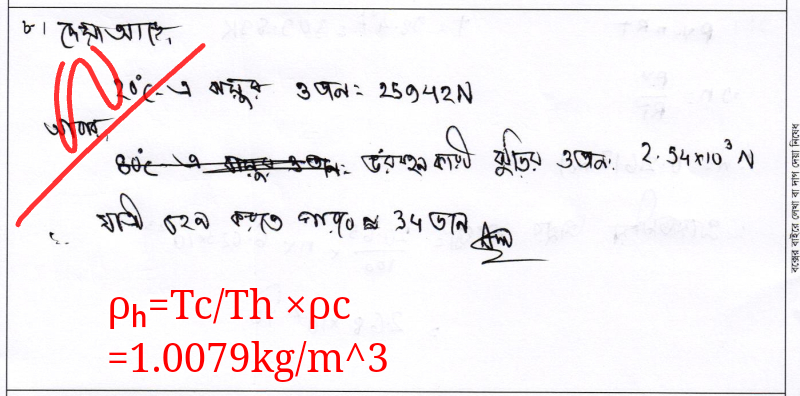 ৮। দেয়া আছে,
২০°C এ বায়ুর ওজন = 25942N
আবার,
ভরবহনকারী ঝুড়ির ওজন = 2.94×10³ N
যাত্রী বহন করতে পারবে ≈ 3.4 জন
ρₕ=Tc/Th ×ρc
=1.0079kg/m^3
বক্সের বাইরে লেখা বা দাগ দেয়া নিষেধ